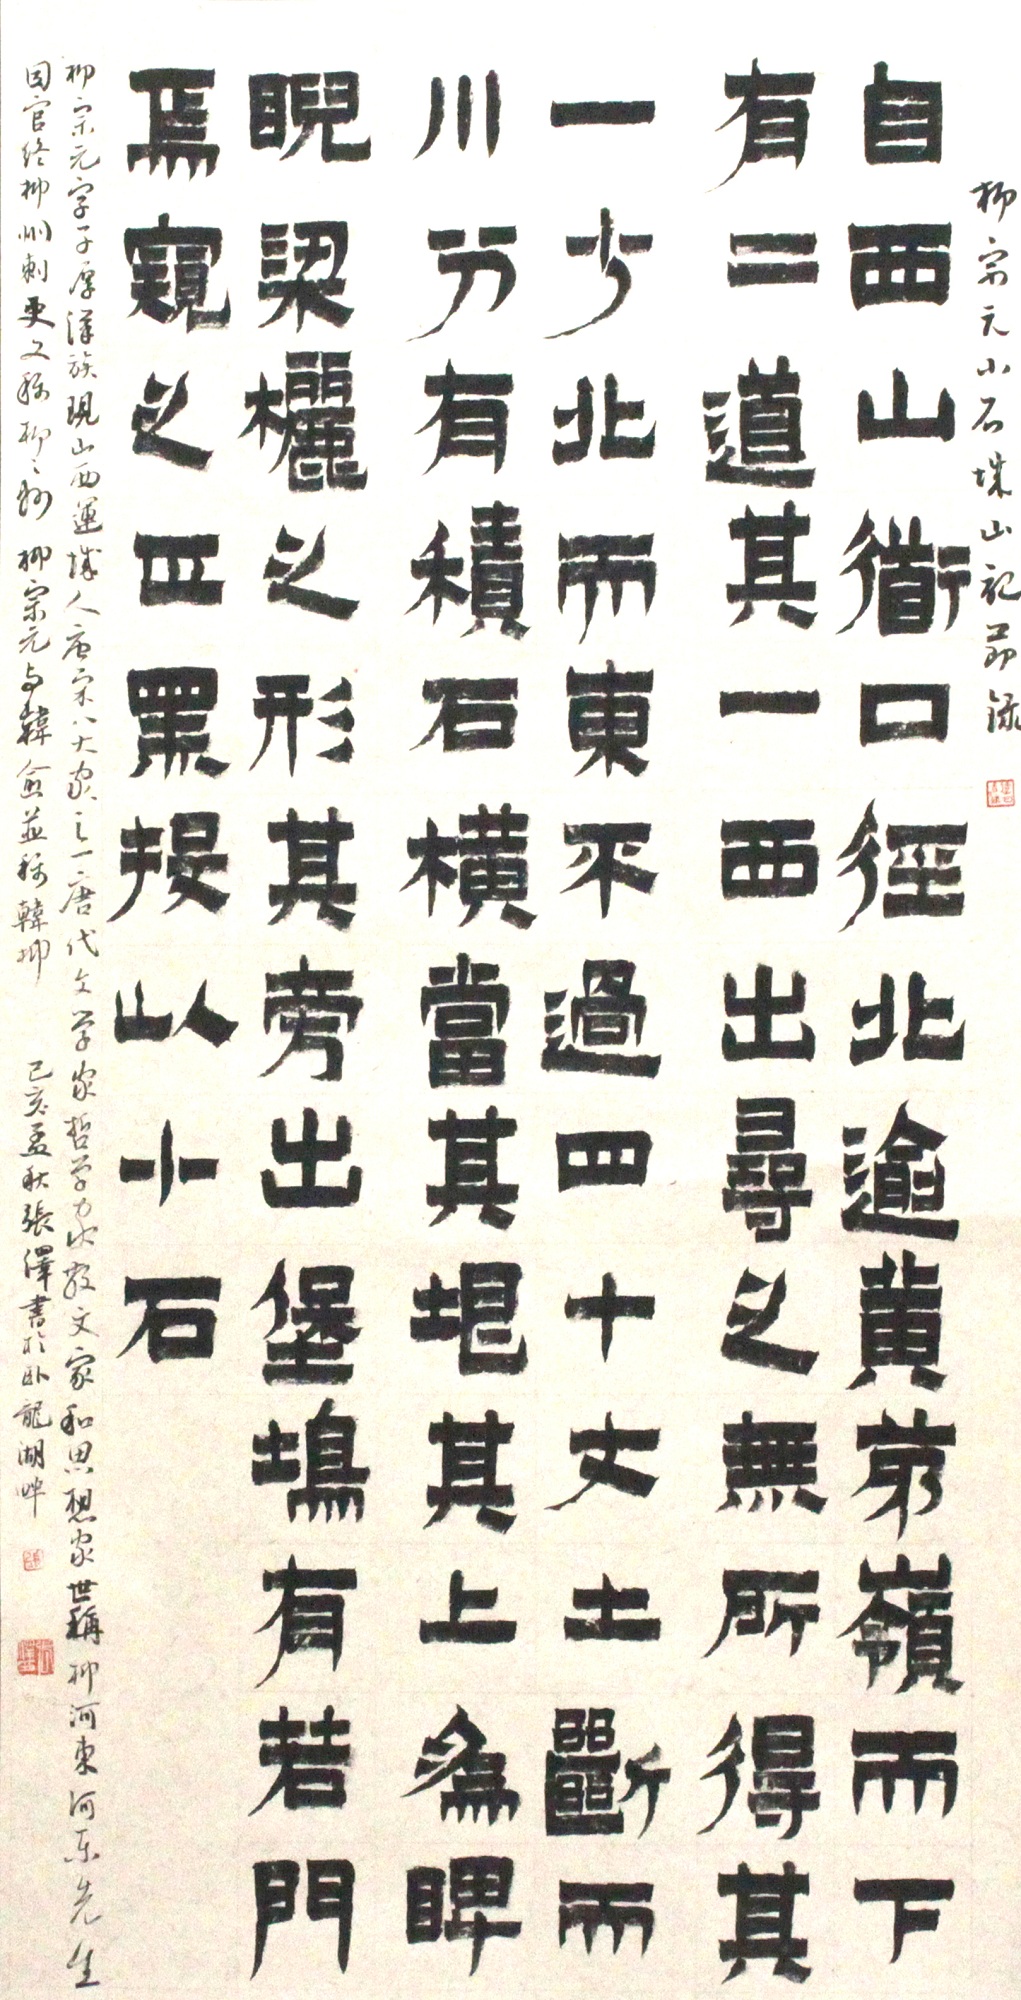 柳宗元小石城山記節錄
自西山衟口徑北逾黄茅嶺而下
有二道其一西出尋之無所得其
一少北而東不過四十丈土斷而
川分有積石橫當其垠其上為睥
睨梁欐之形其旁出堡塢有若門
焉窺之正黑投以小石
柳宗元字子厚漢族現山西運城人唐宋八大家之一唐代文学家哲学家散文家和思想家世稱柳河東河东先生
因官终柳州刺吏又稱柳柳州 柳宗元与韓愈並稱韓柳 己亥孟秋張澤書於卧龍湖畔